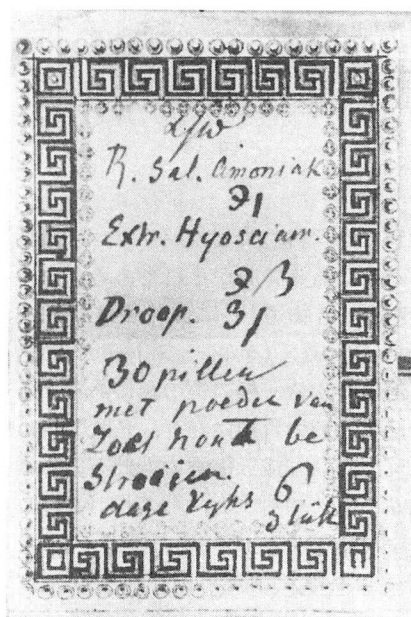 R. Sal. Amoniak
℈ 1
Extr. Hyosciam.
℈ β
Droop. ʒ 1
30 pillen
met poeder van
Zoet hout be
Strooijen.
dage lyks 6
Stuk